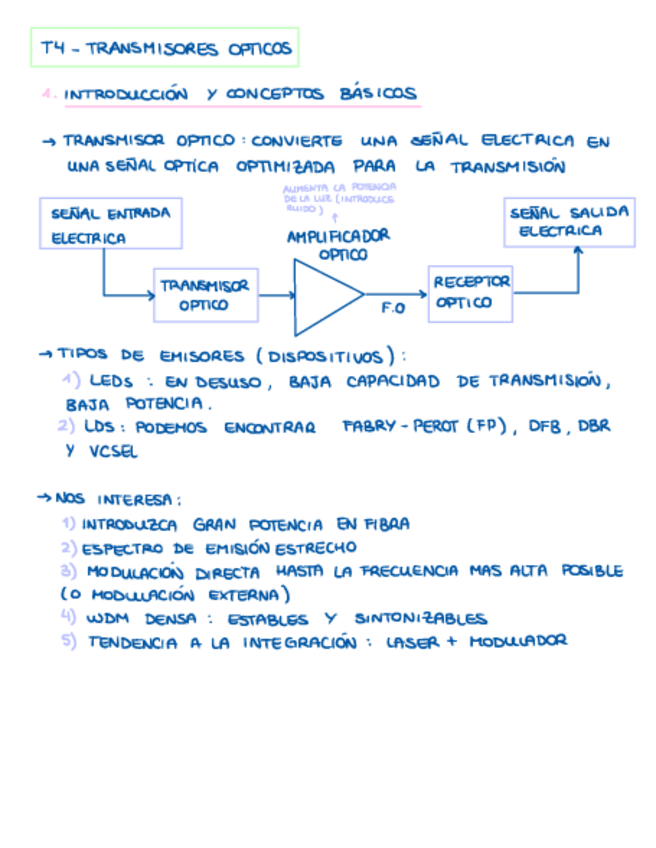 T4 - TRANSMISORES OPTICOS
1. INTRODUCCIÓN Y CONCEPTOS BÁSICOS
→ TRANSMISOR OPTICO : CONVIERTE UNA SEÑAL ELECTRICA EN
UNA SEÑAL OPTICA OPTIMIZADA PARA LA TRANSMISIÓN
AUMENTA LA POTENCIA
DE LA LUZ (INTRODUCE
RUIDO)
SEÑAL ENTRADA
ELECTRICA
SEÑAL SALIDA
ELECTRICA
AMPLIFICADOR
OPTICO
TRANSMISOR
OPTICO
F.O
RECEPTOR
OPTICO
→ TIPOS DE EMISORES (DISPOSITIVOS) :
1) LEDS : EN DESUSO, BAJA CAPACIDAD DE TRANSMISIÓN,
BAJA POTENCIA.
2) LDS : PODEMOS ENCONTRAR FABRY - PEROT (FP), DFB, DBR
Y VCSEL
→ NOS INTERESA :
1) INTRODUZCA GRAN POTENCIA EN FIBRA
2) ESPECTRO DE EMISIÓN ESTRECHO
3) MODULACIÓN DIRECTA HASTA LA FRECUENCIA MAS ALTA POSIBLE
(O MODULACIÓN EXTERNA)
4) WDM DENSA : ESTABLES Y SINTONIZABLES
5) TENDENCIA A LA INTEGRACIÓN : LASER + MODULADOR